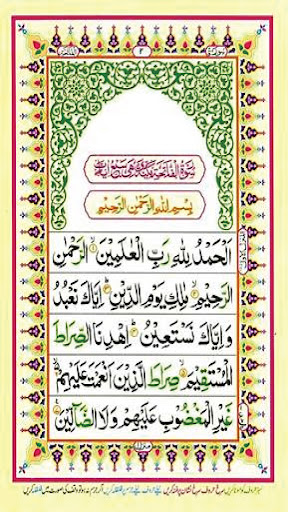 ۲
سُوْرَةُ الْفَاتِحَةِ مَكِّيَّةٌ وَّهِىَ سَبْعُ اٰيَاتٍ
بِسْمِ اللّٰهِ الرَّحْمٰنِ الرَّحِيْمِ
اَلْحَمْدُ لِلّٰهِ رَبِّ الْعٰلَمِيْنَ ۝۱ الرَّحْمٰنِ
الرَّحِيْمِ ۝۲ مٰلِكِ يَوْمِ الدِّيْنِ ۝۳ اِيَّاكَ نَعْبُدُ
وَاِيَّاكَ نَسْتَعِيْنُ ۝۴ اِهْدِنَا الصِّرَاطَ
الْمُسْتَقِيْمَ ۝۵ صِرَاطَ الَّذِيْنَ اَنْعَمْتَ عَلَيْهِمْ ۝۶
غَيْرِ الْمَغْضُوْبِ عَلَيْهِمْ وَلَا الضَّآلِّيْنَ ۝۷